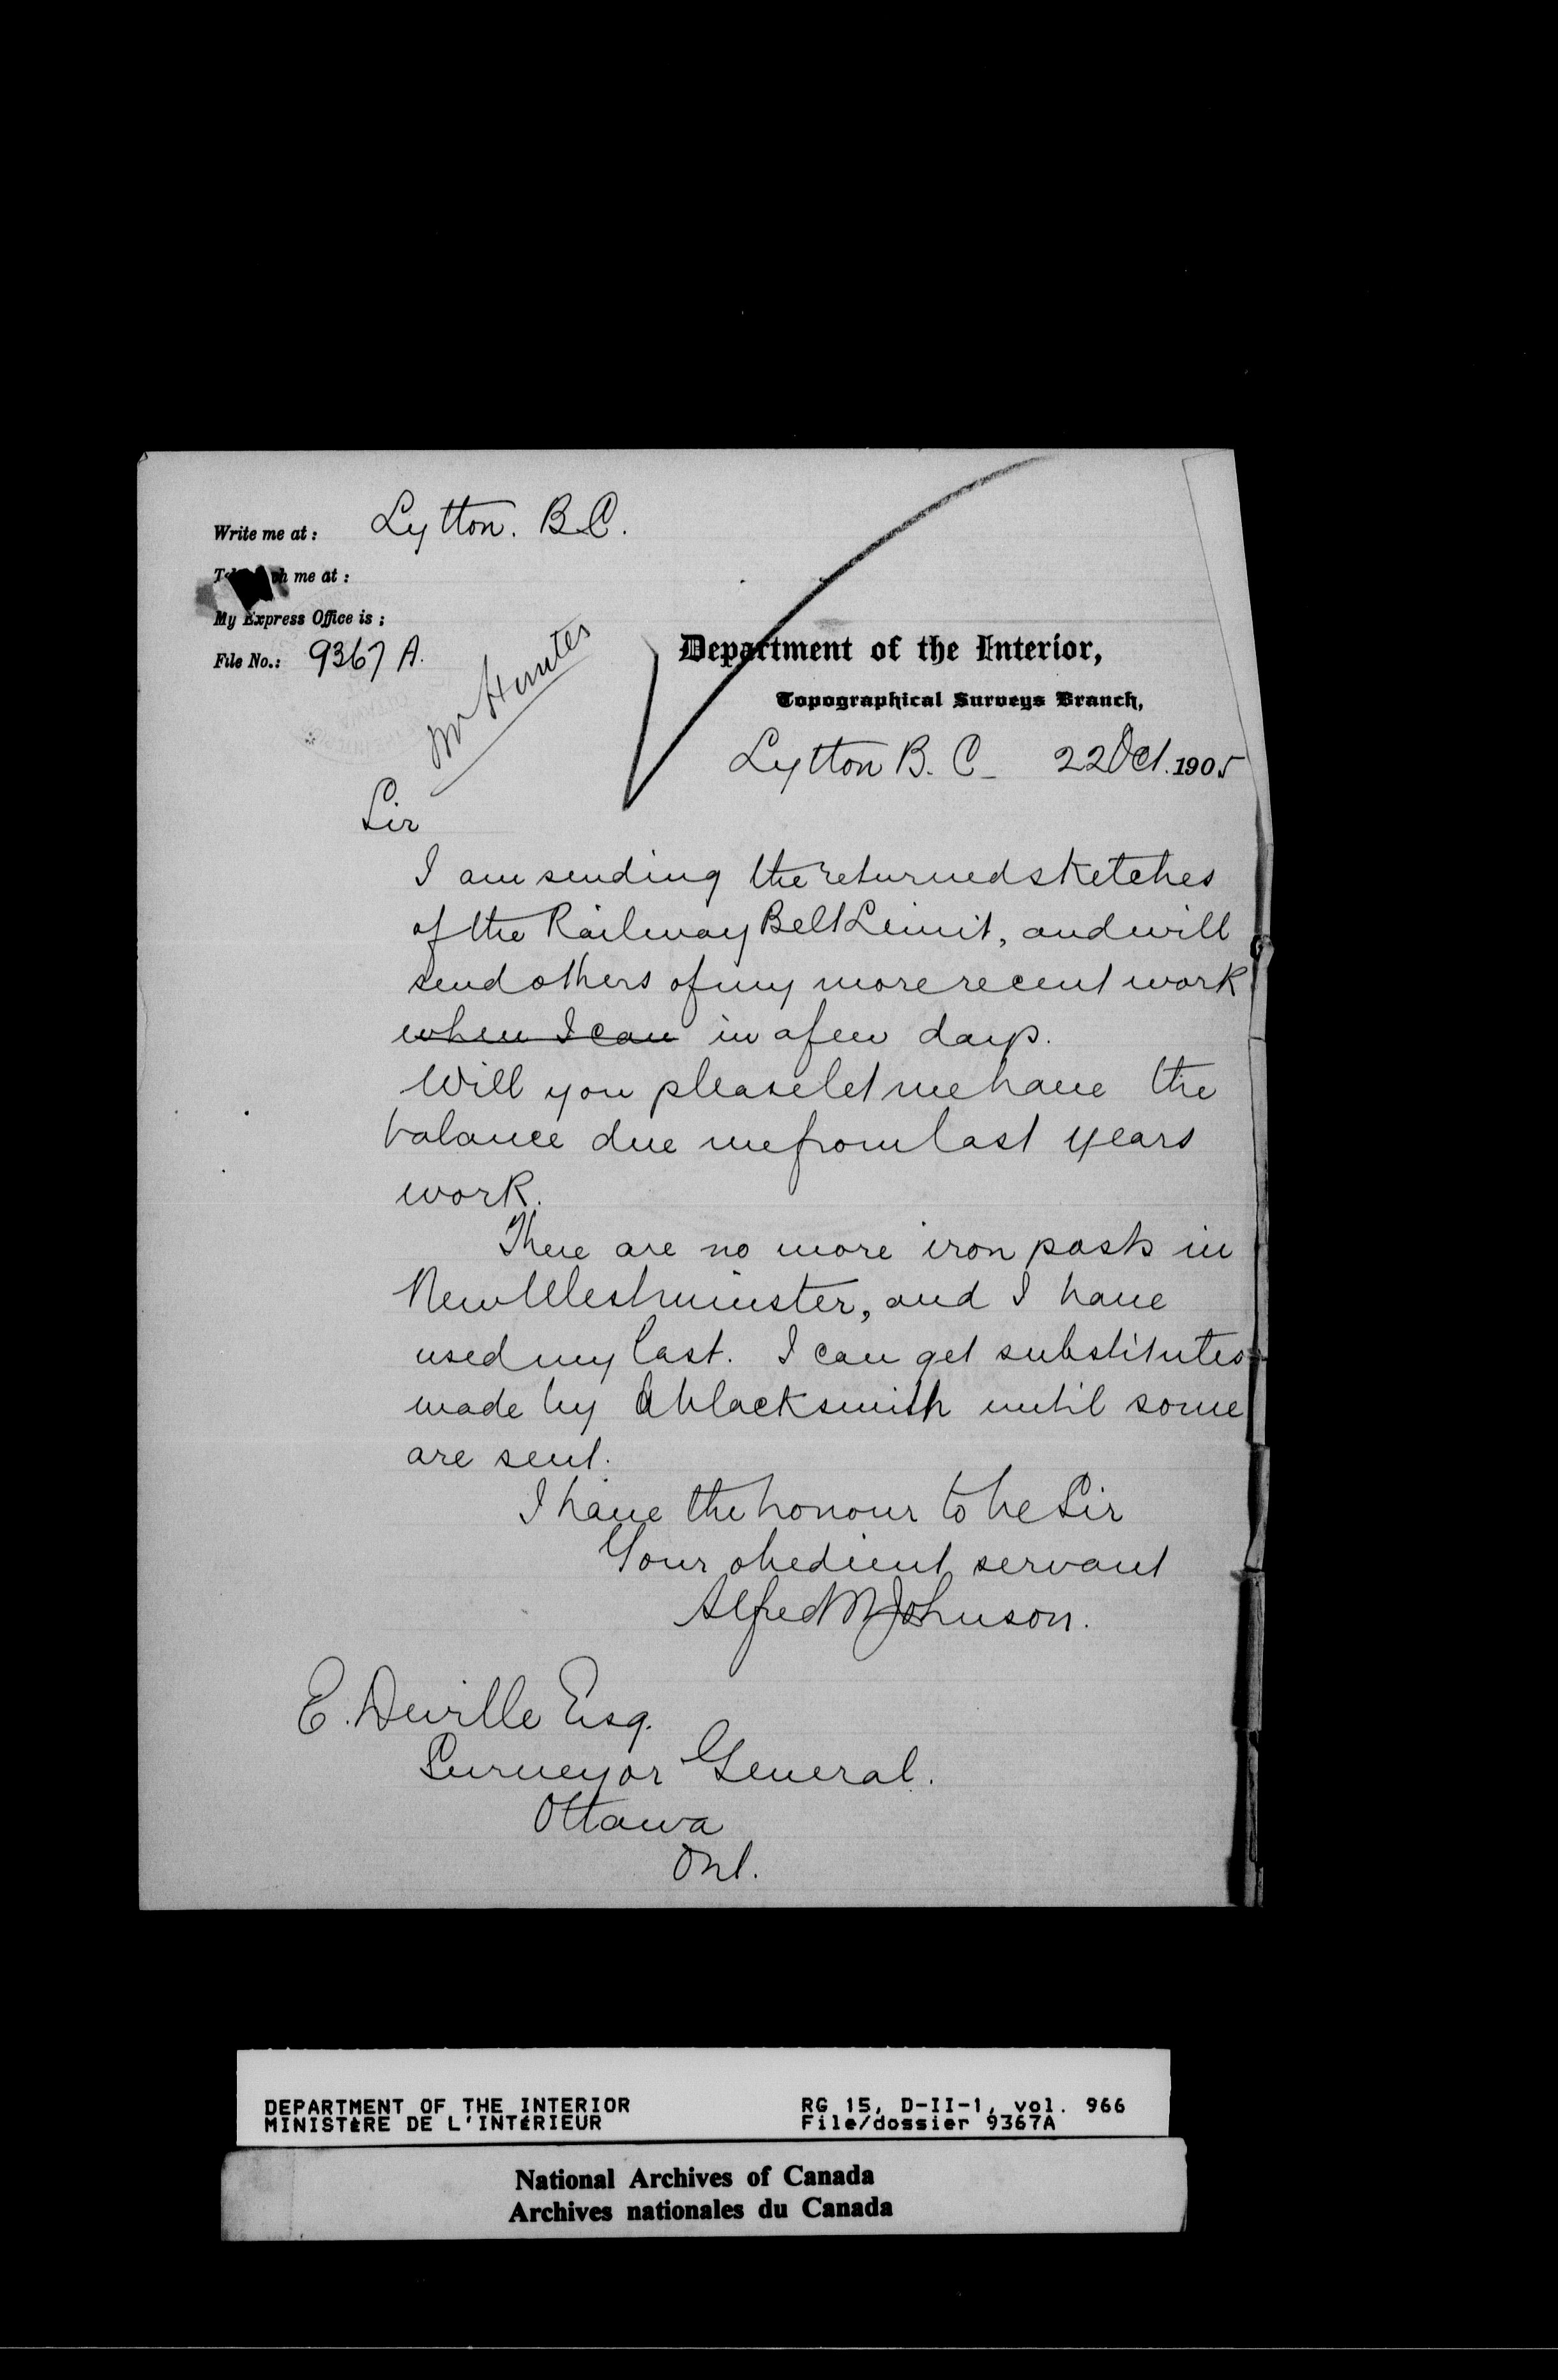 Write me at : Lytton. B.C.
me at :
My Express Office is ;
File No.: 9367 A.
Mr Hunter
Department of the Interior,
Topographical Surveys Branch,
Lytton B. C 22 Oct. 1905
Sir
I am sending the returned sketches
of the Railway Belt Limit, and will
send others of my more recent work
when I can in a few days.
Will you please let me have the
balance due me from last years
work.
There are no more iron posts in
New Westminster, and I have
used my last. I can get substitutes
made by a blacksmith until some
are sent.
I have the honour to be Sir
Your obedient servant
Alfred Johnson.
E. Deville Esq.
Surveyor General.
Ottawa
Ont.
DEPARTMENT OF THE INTERIOR RG 15, D-II-1, vol. 966
MINISTÈRE DE L'INTÉRIEUR File/dossier 9367A
National Archives of Canada
Archives nationales du Canada